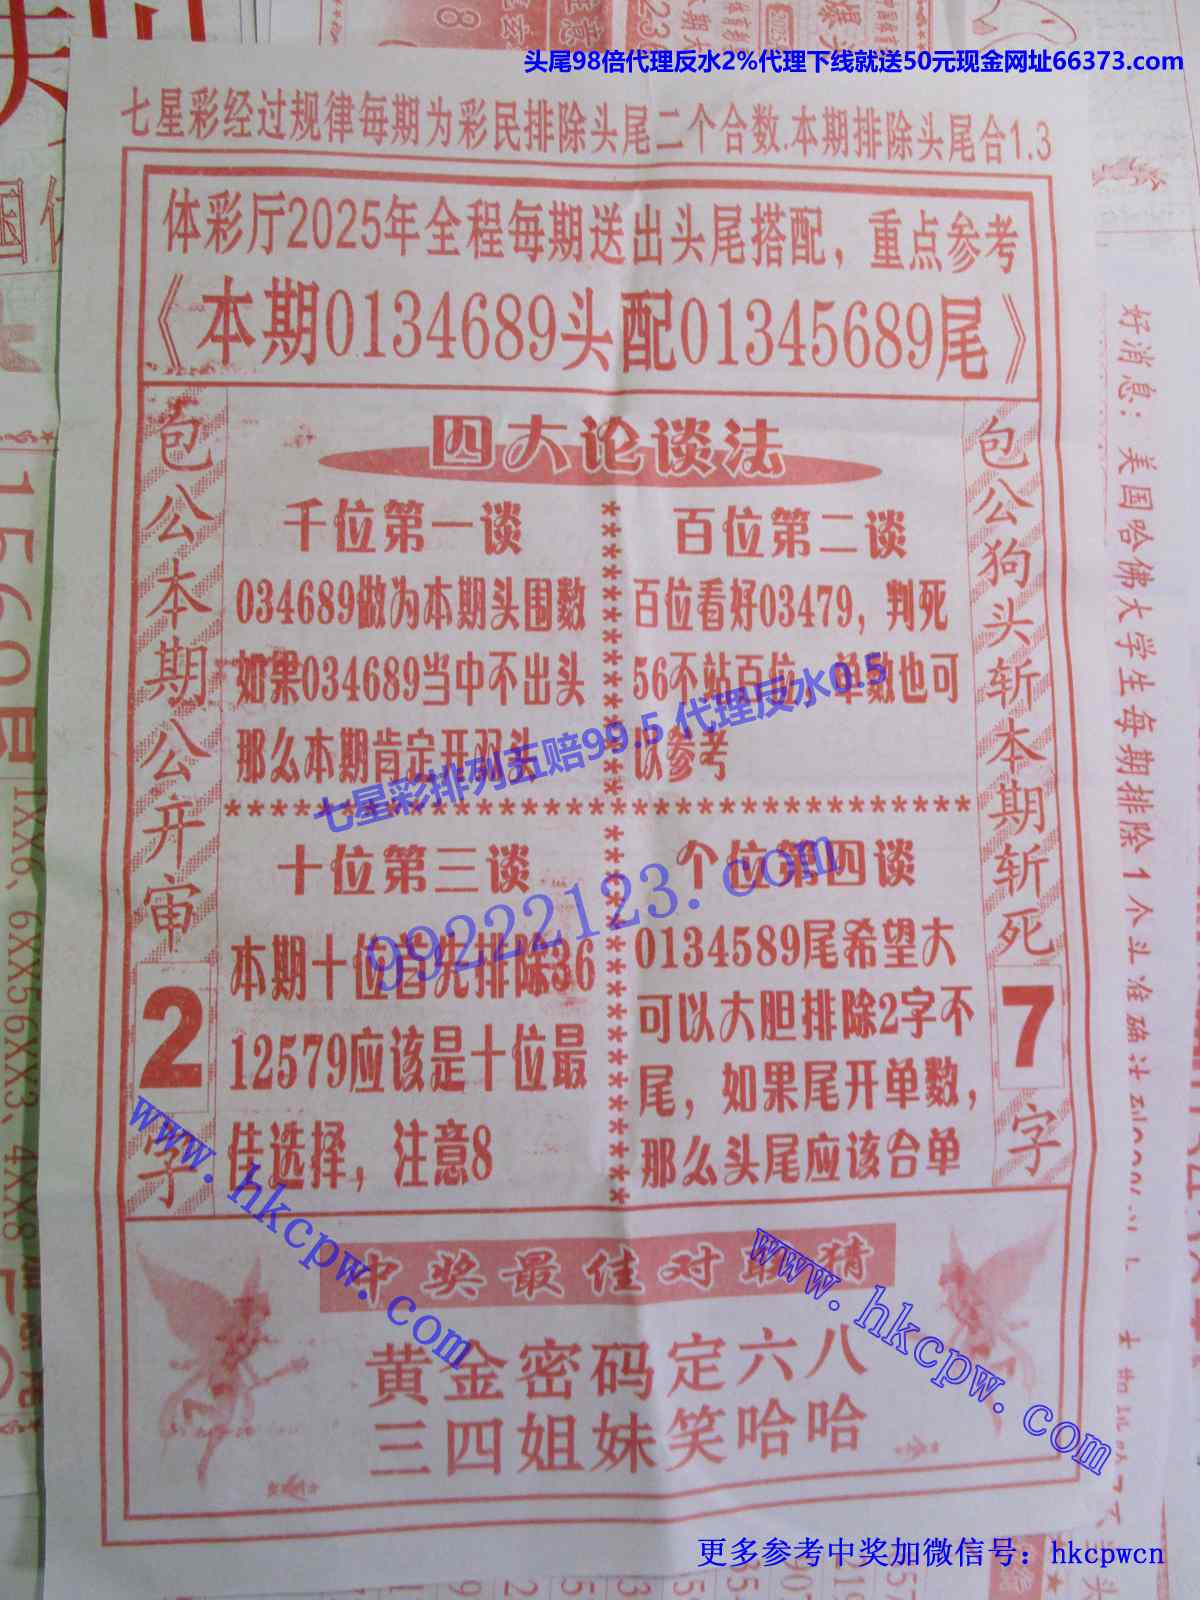 头尾98倍代理反水2%代理下线就送50元现金网址66373.com
七星彩经过规律每期为彩民排除头尾二个合数.本期排除头尾合1.3
体彩厅2025年全程每期送出头尾搭配，重点参考
《本期0134689头配01345689尾》
四大论谈法
包公本期公开审2字
千位第一谈
034689做为本期头围数
如果034689当中不出头
那么本期肯定开双头
百位第二谈
百位看好03479，判死
56不站百位，单数也可
以参考
七星彩排列五赔99.5 代理反水0.5
十位第三谈
本期十位首先排除36
12579应该是十位最
佳选择，注意8
个位第四谈
0134589尾希望大
可以大胆排除2字不
尾，如果尾开单数，
那么头尾应该合单
99222123.com
包公狗头斩本期斩死7字
中奖最佳对联猜
黄金密码定六八
三四姐妹笑哈哈
www.hkcpw.com
www.hkcpw.com
好消息：美国哈佛大学生每期排除1个头准确
更多参考中奖加微信号：hkcpwcn